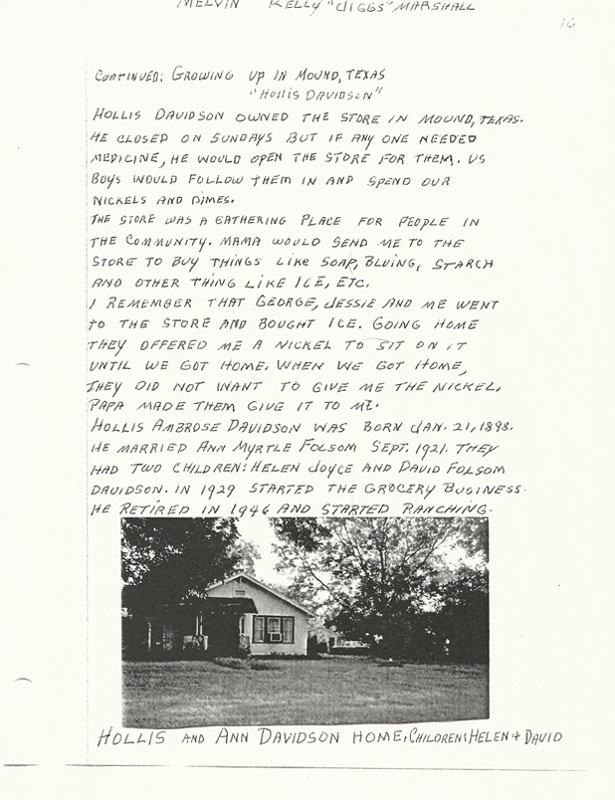 MELVIN KELLY "JIGGS" MARSHALL
CONTINUED: GROWING UP IN MOUND, TEXAS
"HOLLIS DAVIDSON"
HOLLIS DAVIDSON OWNED THE STORE IN MOUND, TEXAS.
HE CLOSED ON SUNDAYS BUT IF ANY ONE NEEDED
MEDICINE, HE WOULD OPEN THE STORE FOR THEM. US
BOYS WOULD FOLLOW THEM IN AND SPEND OUR
NICKELS AND DIMES.
THE STORE WAS A GATHERING PLACE FOR PEOPLE IN
THE COMMUNITY. MAMA WOULD SEND ME TO THE
STORE TO BUY THINGS LIKE SOAP, BLUING, STARCH
AND OTHER THING LIKE ICE, ETC.
I REMEMBER THAT GEORGE, JESSIE AND ME WENT
TO THE STORE AND BOUGHT ICE. GOING HOME
THEY OFFERED ME A NICKEL TO SIT ON IT
UNTIL WE GOT HOME. WHEN WE GOT HOME,
THEY DID NOT WANT TO GIVE ME THE NICKEL.
PAPA MADE THEM GIVE IT TO ME.
HOLLIS AMBROSE DAVIDSON WAS BORN JAN. 21, 1898.
HE MARRIED ANN MYRTLE FOLSOM SEPT. 1921. THEY
HAD TWO CHILDREN: HELEN JOYCE AND DAVID FOLSOM
DAVIDSON. IN 1929 STARTED THE GROCERY BUSINESS.
HE RETIRED IN 1946 AND STARTED RANCHING.
HOLLIS AND ANN DAVIDSON HOME, CHILDREN: HELEN + DAVID